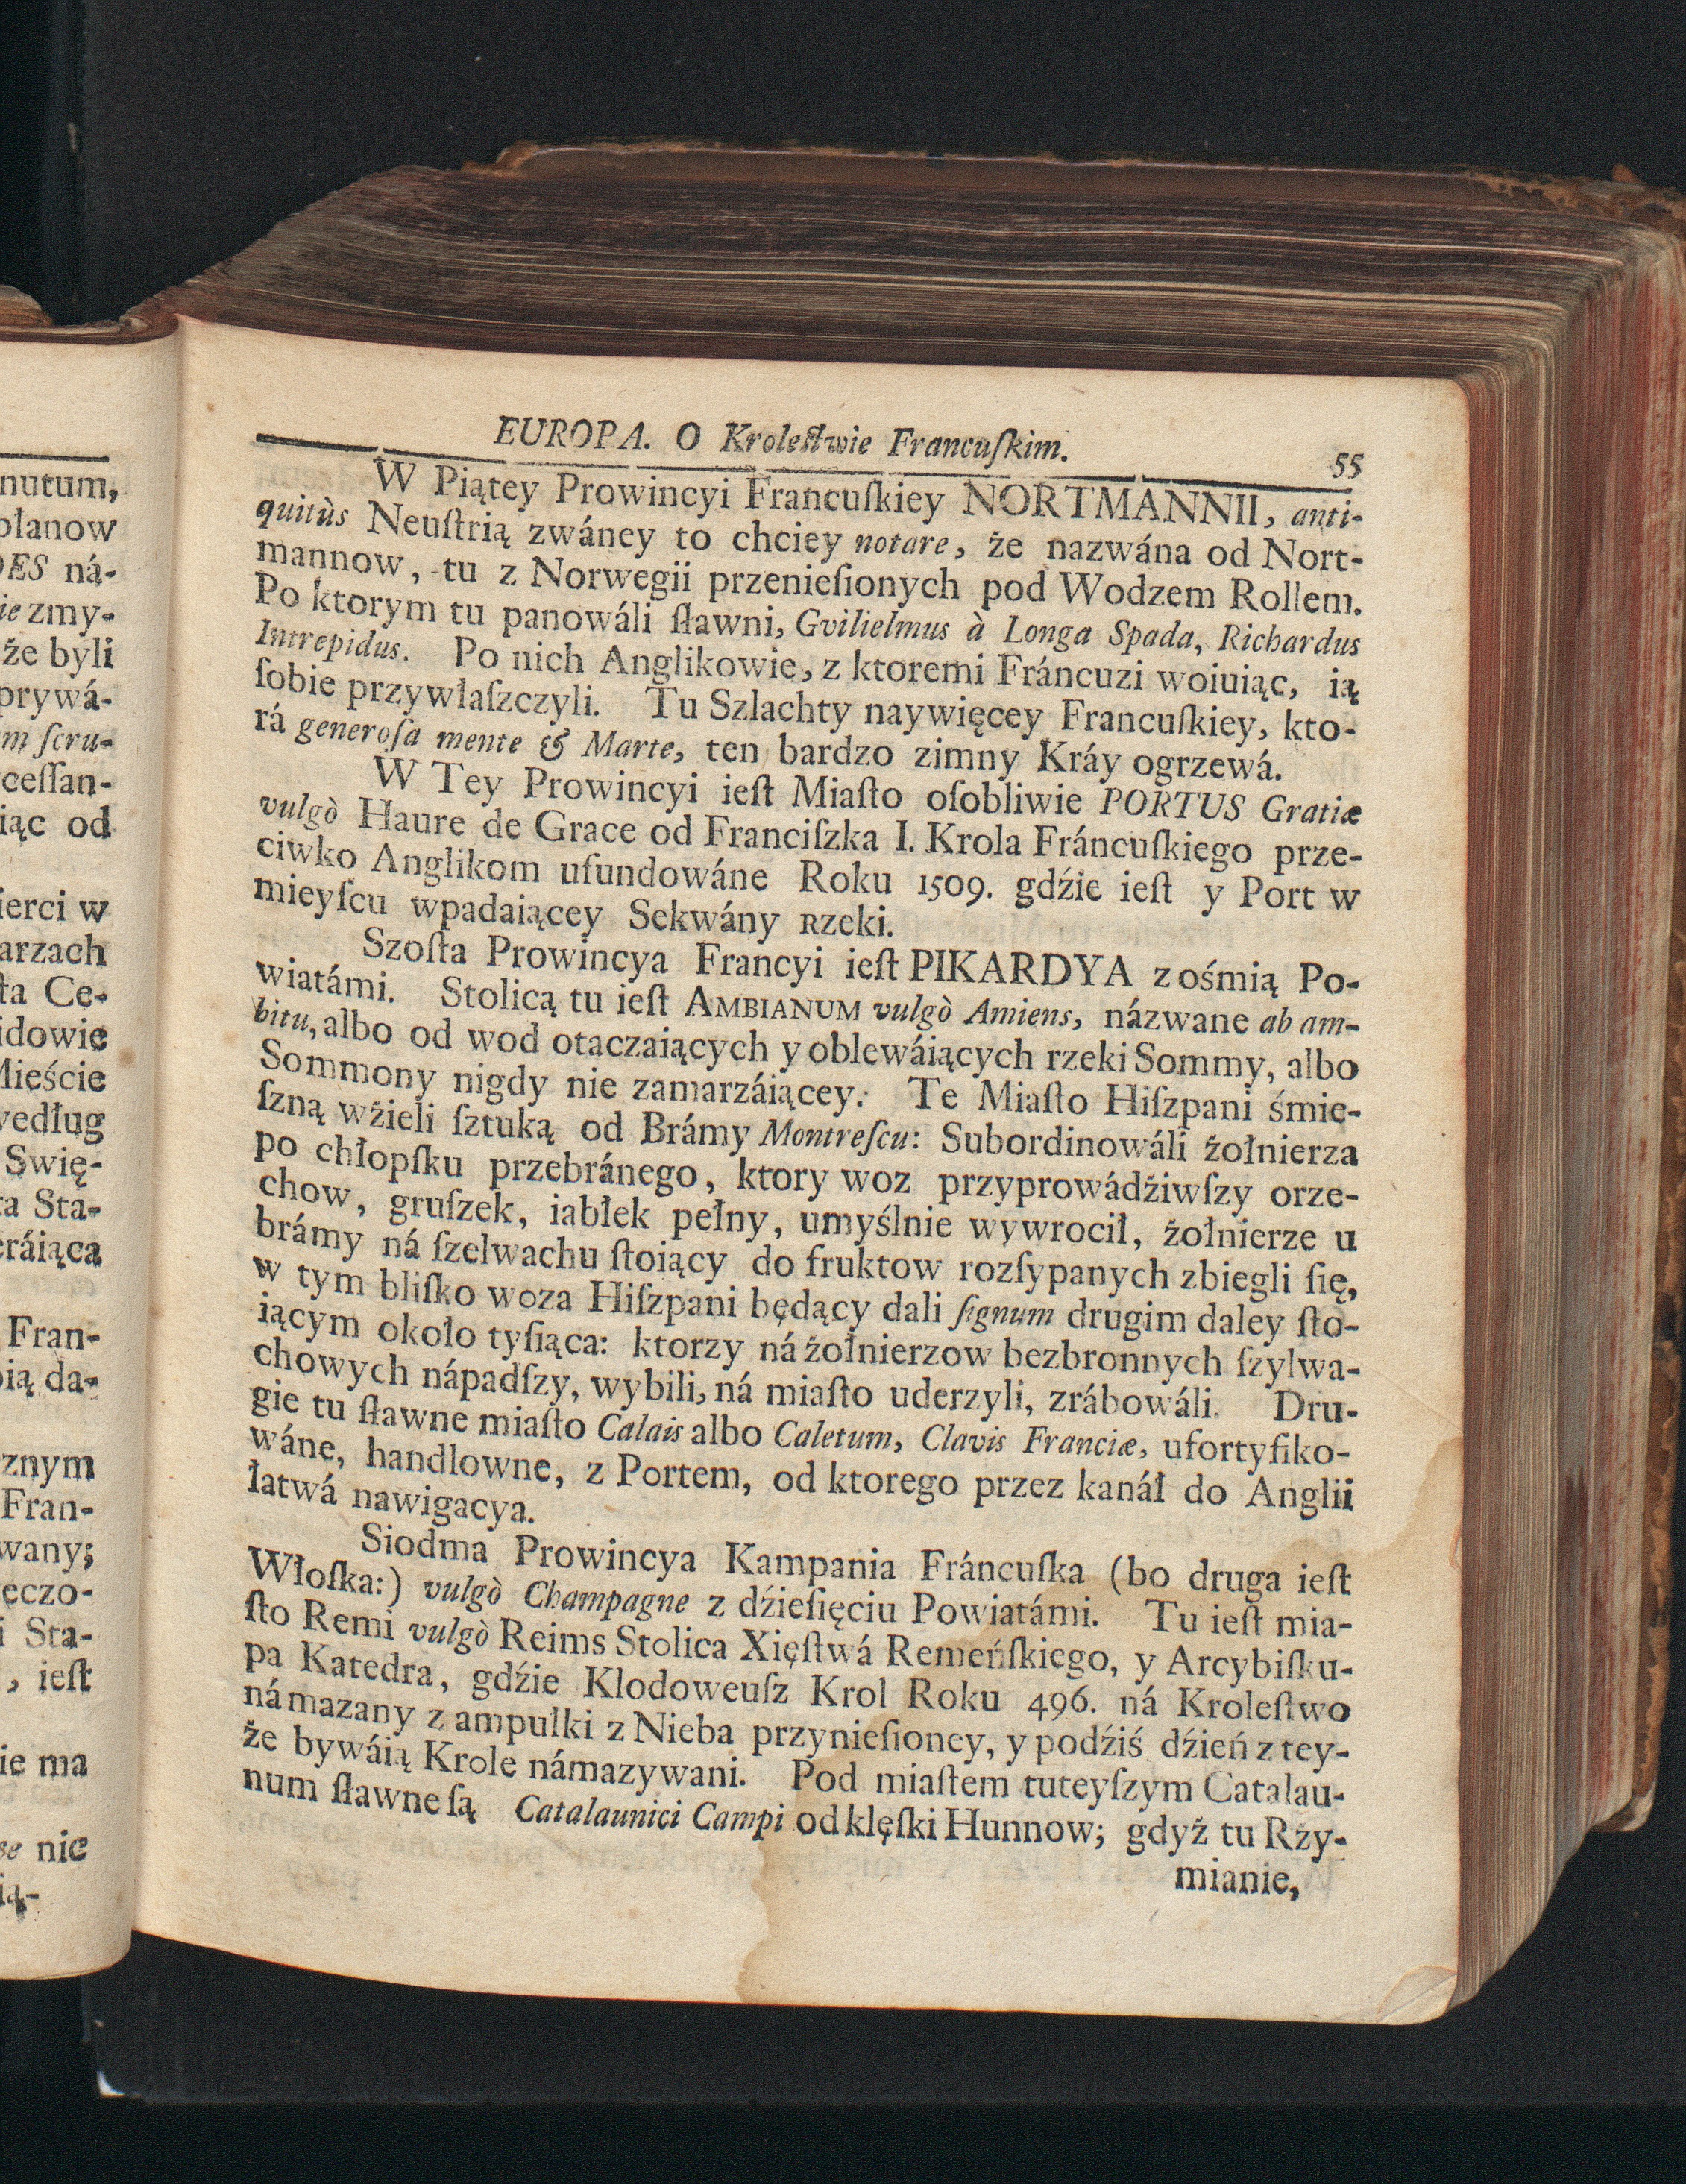 nutum,
ołanow
DES ná-
ie zmy-
że byli
prywá-
m ſcru-
ceſſan-
iąc od
ierci w
arzach
ta Ce-
idowie
Mieście
według
Swię-
ta Sta-
eráiąca
Fran-
ią da-
znym
Fran-
wany;
ęczo-
i Sta-
, ieſt
ie ma
se nie
ią-
EUROPA. O Kroleſtwie Francuſkim. 55
W Piątey Prowincyi Francuſkiey NORTMANNII, anti-
quitùs Neuſtrią zwáney to chciey notare, że nazwána od Nort-
mannow, tu z Norwegii przenieſionych pod Wodzem Rollem.
Po ktorym tu panowáli ſławni, Gvilielmus à Longa Spada, Richardus
Intrepidus. Po nich Anglikowie, z ktoremi Fráncuzi woiuiąc, ią
ſobie przywłaſzczyli. Tu Szlachty naywięcey Francuſkiey, kto-
rá generoſa mente & Marte, ten bardzo zimny Kráy ogrzewá.
W Tey Prowincyi ieſt Miaſto oſobliwie PORTUS Gratiæ
vulgò Haure de Grace od Franciſzka I. Krola Fráncuſkiego prze-
ciwko Anglikom ufundowáne Roku 1509. gdźie ieſt y Port w
mieyſcu wpadaiącey Sekwány Rzeki.
Szoſta Prowincya Francyi ieſt PIKARDYA z ośmią Po-
wiatámi. Stolicą tu ieſt AMBIANUM vulgò Amiens, názwane ab am-
bitu, albo od wod otaczaiących y oblewáiących rzeki Sommy, albo
Sommony nigdy nie zamarzáiącey. Te Miaſto Hiſzpani śmie-
ſzną wźieli ſztuką od Brámy Montreſcu: Subordinowáli żołnierza
po chłopſku przebránego, ktory woz przyprowádźiwſzy orze-
chow, gruſzek, iabłek pełny, umyślnie wywrocił, żołnierze u
brámy ná ſzelwachu ſtoiący do fruktow rozſypanych zbiegli ſię,
w tym bliſko woza Hiſzpani będący dali ſignum drugim daley ſto-
iącym około tyſiąca: ktorzy ná żołnierzow bezbronnych ſzylwa-
chowych nápadſzy, wybili, ná miaſto uderzyli, zrábowáli. Dru-
gie tu ſławne miaſto Calais albo Caletum, Clavis Franciæ, ufortyfiko-
wáne, handlowne, z Portem, od ktorego przez kanáł do Anglii
łatwá nawigacya.
Siodma Prowincya Kampania Fráncuſka (bo druga ieſt
Włoſka:) vulgò Champagne z dźieſięciu Powiatámi. Tu ieſt mia-
ſto Remi vulgò Reims Stolica Xięſtwá Remeńſkiego, y Arcybiſku-
pa Katedra, gdźie Klodoweuſz Krol Roku 496. ná Kroleſtwo
námazany z ampułki z Nieba przynieſioney, y podźiś dźień z tey-
że bywáią Krole námazywani. Pod miaſtem tuteyſzym Catalau-
num ſławne ſą Catalaunici Campi od klęſki Hunnow; gdyż tu Rży-
mianie,